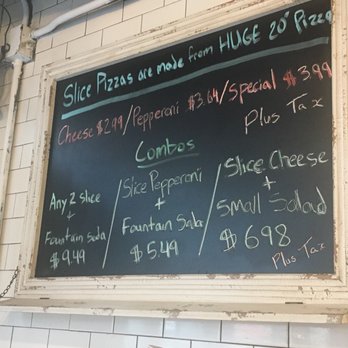 Slice Pizzas are made from HUGE 20" Pizza
Cheese $2.99/Pepperoni $3.64/Special $3.99
Plus Tax
Combos
Any 2 slice
+
Fountain Soda
$9.49
Slice Pepperoni
+
Fountain Soda
$5.49
Slice Cheese
+
Small Salad
$698
Plus Tax